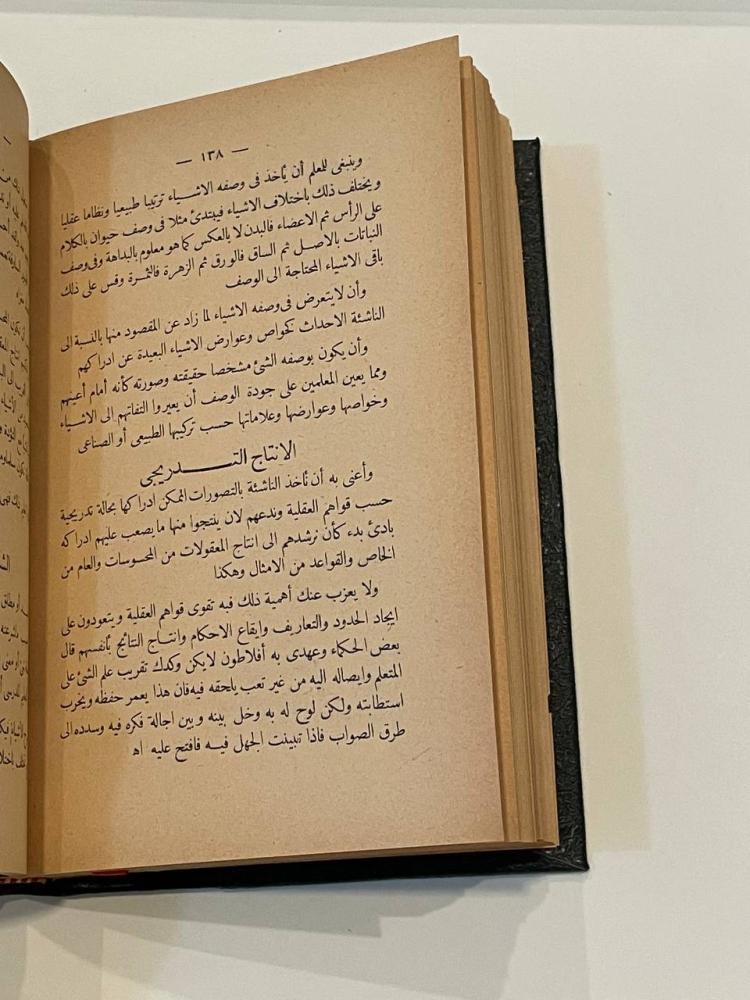 — ١٣٨ —
وينبغى للمعلم أن يأخذ فى وصفه الاشـــياء ترتيبا طبيعيا ونظاما عقليا
ويختلف ذلك باختلاف الاشياء فيبتدئ مثلا فى وصف حيوان بالكلام
على الرأس ثم الاعضاء فالبدن لا بالعكس كما هو معلوم بالبداهة وفى وصف
النباتات بالاصـل ثم الساق فالورق ثم الزهرة فالثمـرة وقس على ذلك
باقى الاشياء المحتاجة الى الوصف
وأن لا يتعرض فى وصفه الاشياء لما زاد عن المقصود منها بالنسبة الى
الناشئة الاحداث كخواص وعوارض الاشياء البعيدة عن ادراكهم
وأن يكون بوصفه الشئ مشخصا حقيقته وصورته كأنه أمام أعينهم
ومما يعين المعلمين على جودة الوصف أن يعيروا التفاتهم الى الاشـياء
وخواصها وعوارضها وعلاماتها حسب تركيبها الطبيعى أو الصناعى
الانتاج التـــدريجى
وأعنى به أن نأخذ الناشئة بالتصورات الممكن ادراكها بحالة تدريجية
حسب قواهم العقلية وندعهم لان ينتجوا منها ما يصعب عليهم ادراكه
بادئ بدء كأن نرشدهم الى انتاج المعقولات من المحسوسات والعام من
الخاص والقواعد من الامثال وهكذا
ولا يعزب عنك أهمية ذلك فبه تقوى قواهم العقلية ويتعودون على
ايجاد الحدود والتعاريف وايقاع الاحكام وانتـاج النتائج بأنفسهم قال
بعض الحكماء وعهدى به أفلاطون لا يكن وكدك تقريب علم الشئ على
المتعلم وايصاله اليه من غير تعب يلحقه فيه فان هذا يعمر حفظه ويخرب
استطابته ولكن لوح له به وخل بينه وبين اجالة فكره فيه وسدده الى
طرق الصواب فاذا تبينت الجهل فيــه فافتح عليه اه